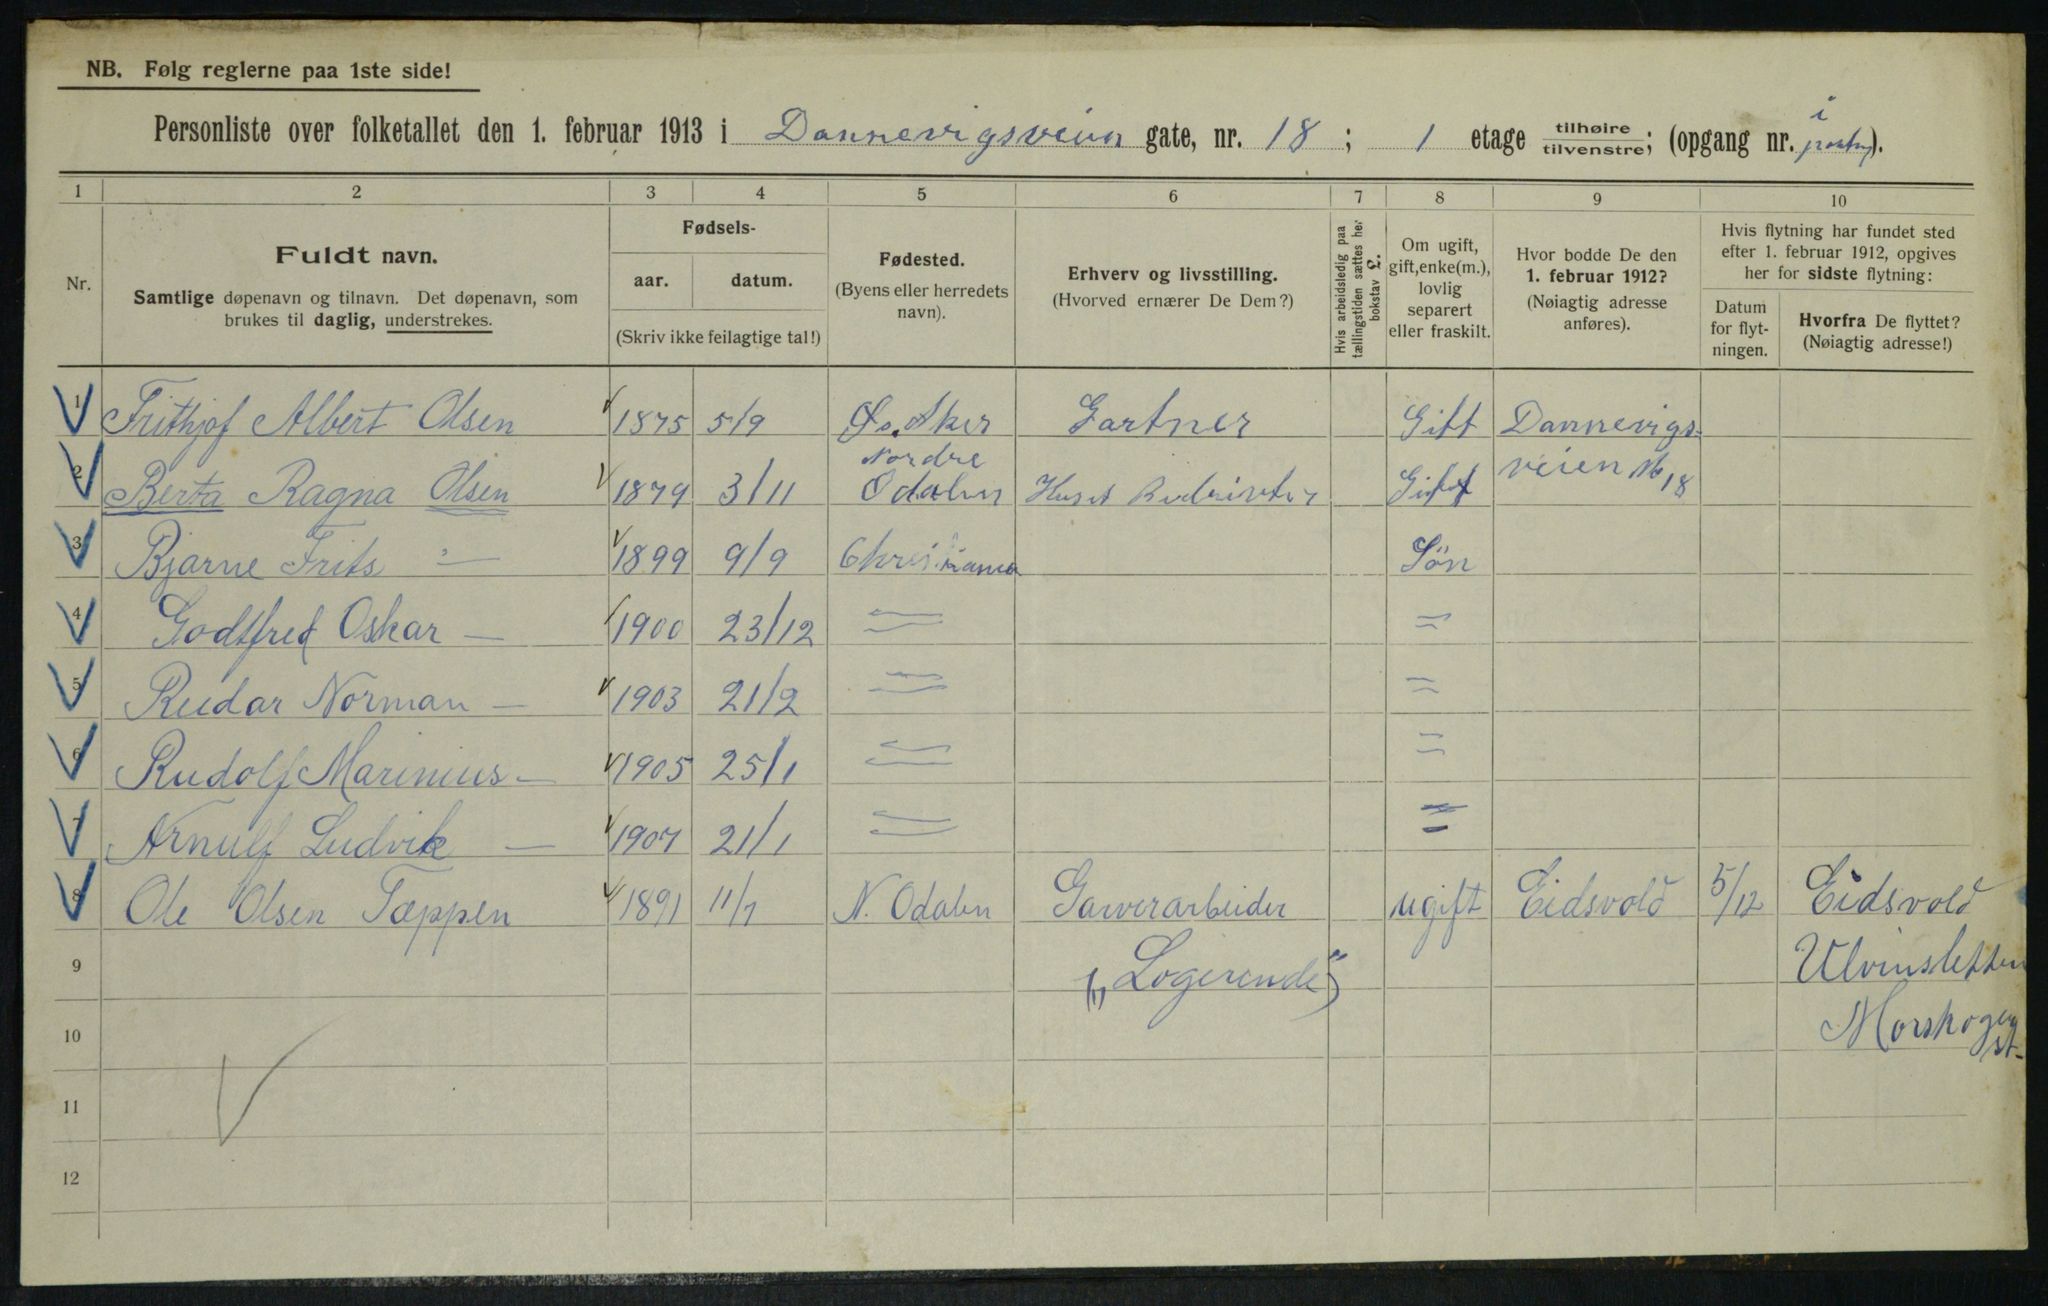 NB. Følg reglerne paa 1ste side!
Personliste over folketallet den 1. februar 1913 i Dannevigsveien gate, nr. 18; 1 etage tilhøire tilvenstre; (opgang nr. i).
1 2 3 4 5 6 7 8 9 10
Nr.
Fuldt navn.
Samtlige døpenavn og tilnavn. Det døpenavn, som
brukes til daglig, understrekes.
Fødsels-
aar. datum.
(Skriv ikke feilagtige tal!)
Fødested.
(Byens eller herredets
navn).
Erhverv og livsstilling.
(Hvorved ernærer De Dem?)
Hvis arbeidsledig paa
tællingstiden sættes her
bokstav L.
Om ugift,
gift, enke(m.),
lovlig
separert
eller fraskilt.
Hvor bodde De den
1. februar 1912?
(Nøiagtig adresse
anføres).
Hvis flytning har fundet sted
efter 1. februar 1912, opgives
her for sidste flytning:
Datum
for flyt-
ningen.
Hvorfra De flyttet?
(Nøiagtig adresse!)
1 Frithjof Albert Olsen 1875 5/9 Øs. Aker Gartner Gift Dannevigs-
2 Berta Ragna Olsen 1879 3/11 Nordre Odalen Huset Gift veien No 18
3 Bjarne Frits " — 1899 9/9 Christiania Søn
4 Godtfred Oskar — 1900 23/12 = =
5 Reidar Norman — 1903 21/2 = =
6 Rudolf Marinius — 1905 25/1 = =
7 Arnulf Ludvik — 1907 21/1 = =
8 Ole Olsen Tæppen 1891 11/7 N. Odalen Garverarbeider ugift Eidsvold 5/12 Eidsvold
9 („Logerende") Ulvinsletten
10 Morskogen st.
11
12